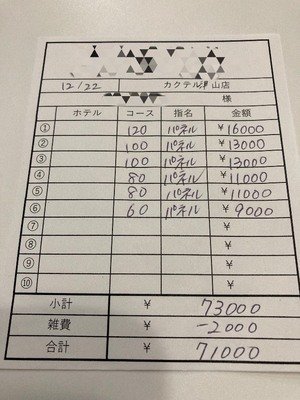 12/22 カクテル津山店
様
ホテル コース 指名 金額
① 120 パネル ¥16000
② 100 パネル ¥13000
③ 100 パネル ¥13000
④ 80 パネル ¥11000
⑤ 80 パネル ¥11000
⑥ 60 パネル ¥9000
⑦ ¥
⑧ ¥
⑨ ¥
⑩ ¥
小計 ¥ 73000
雑費 ¥ -2000
合計 ¥ 71000